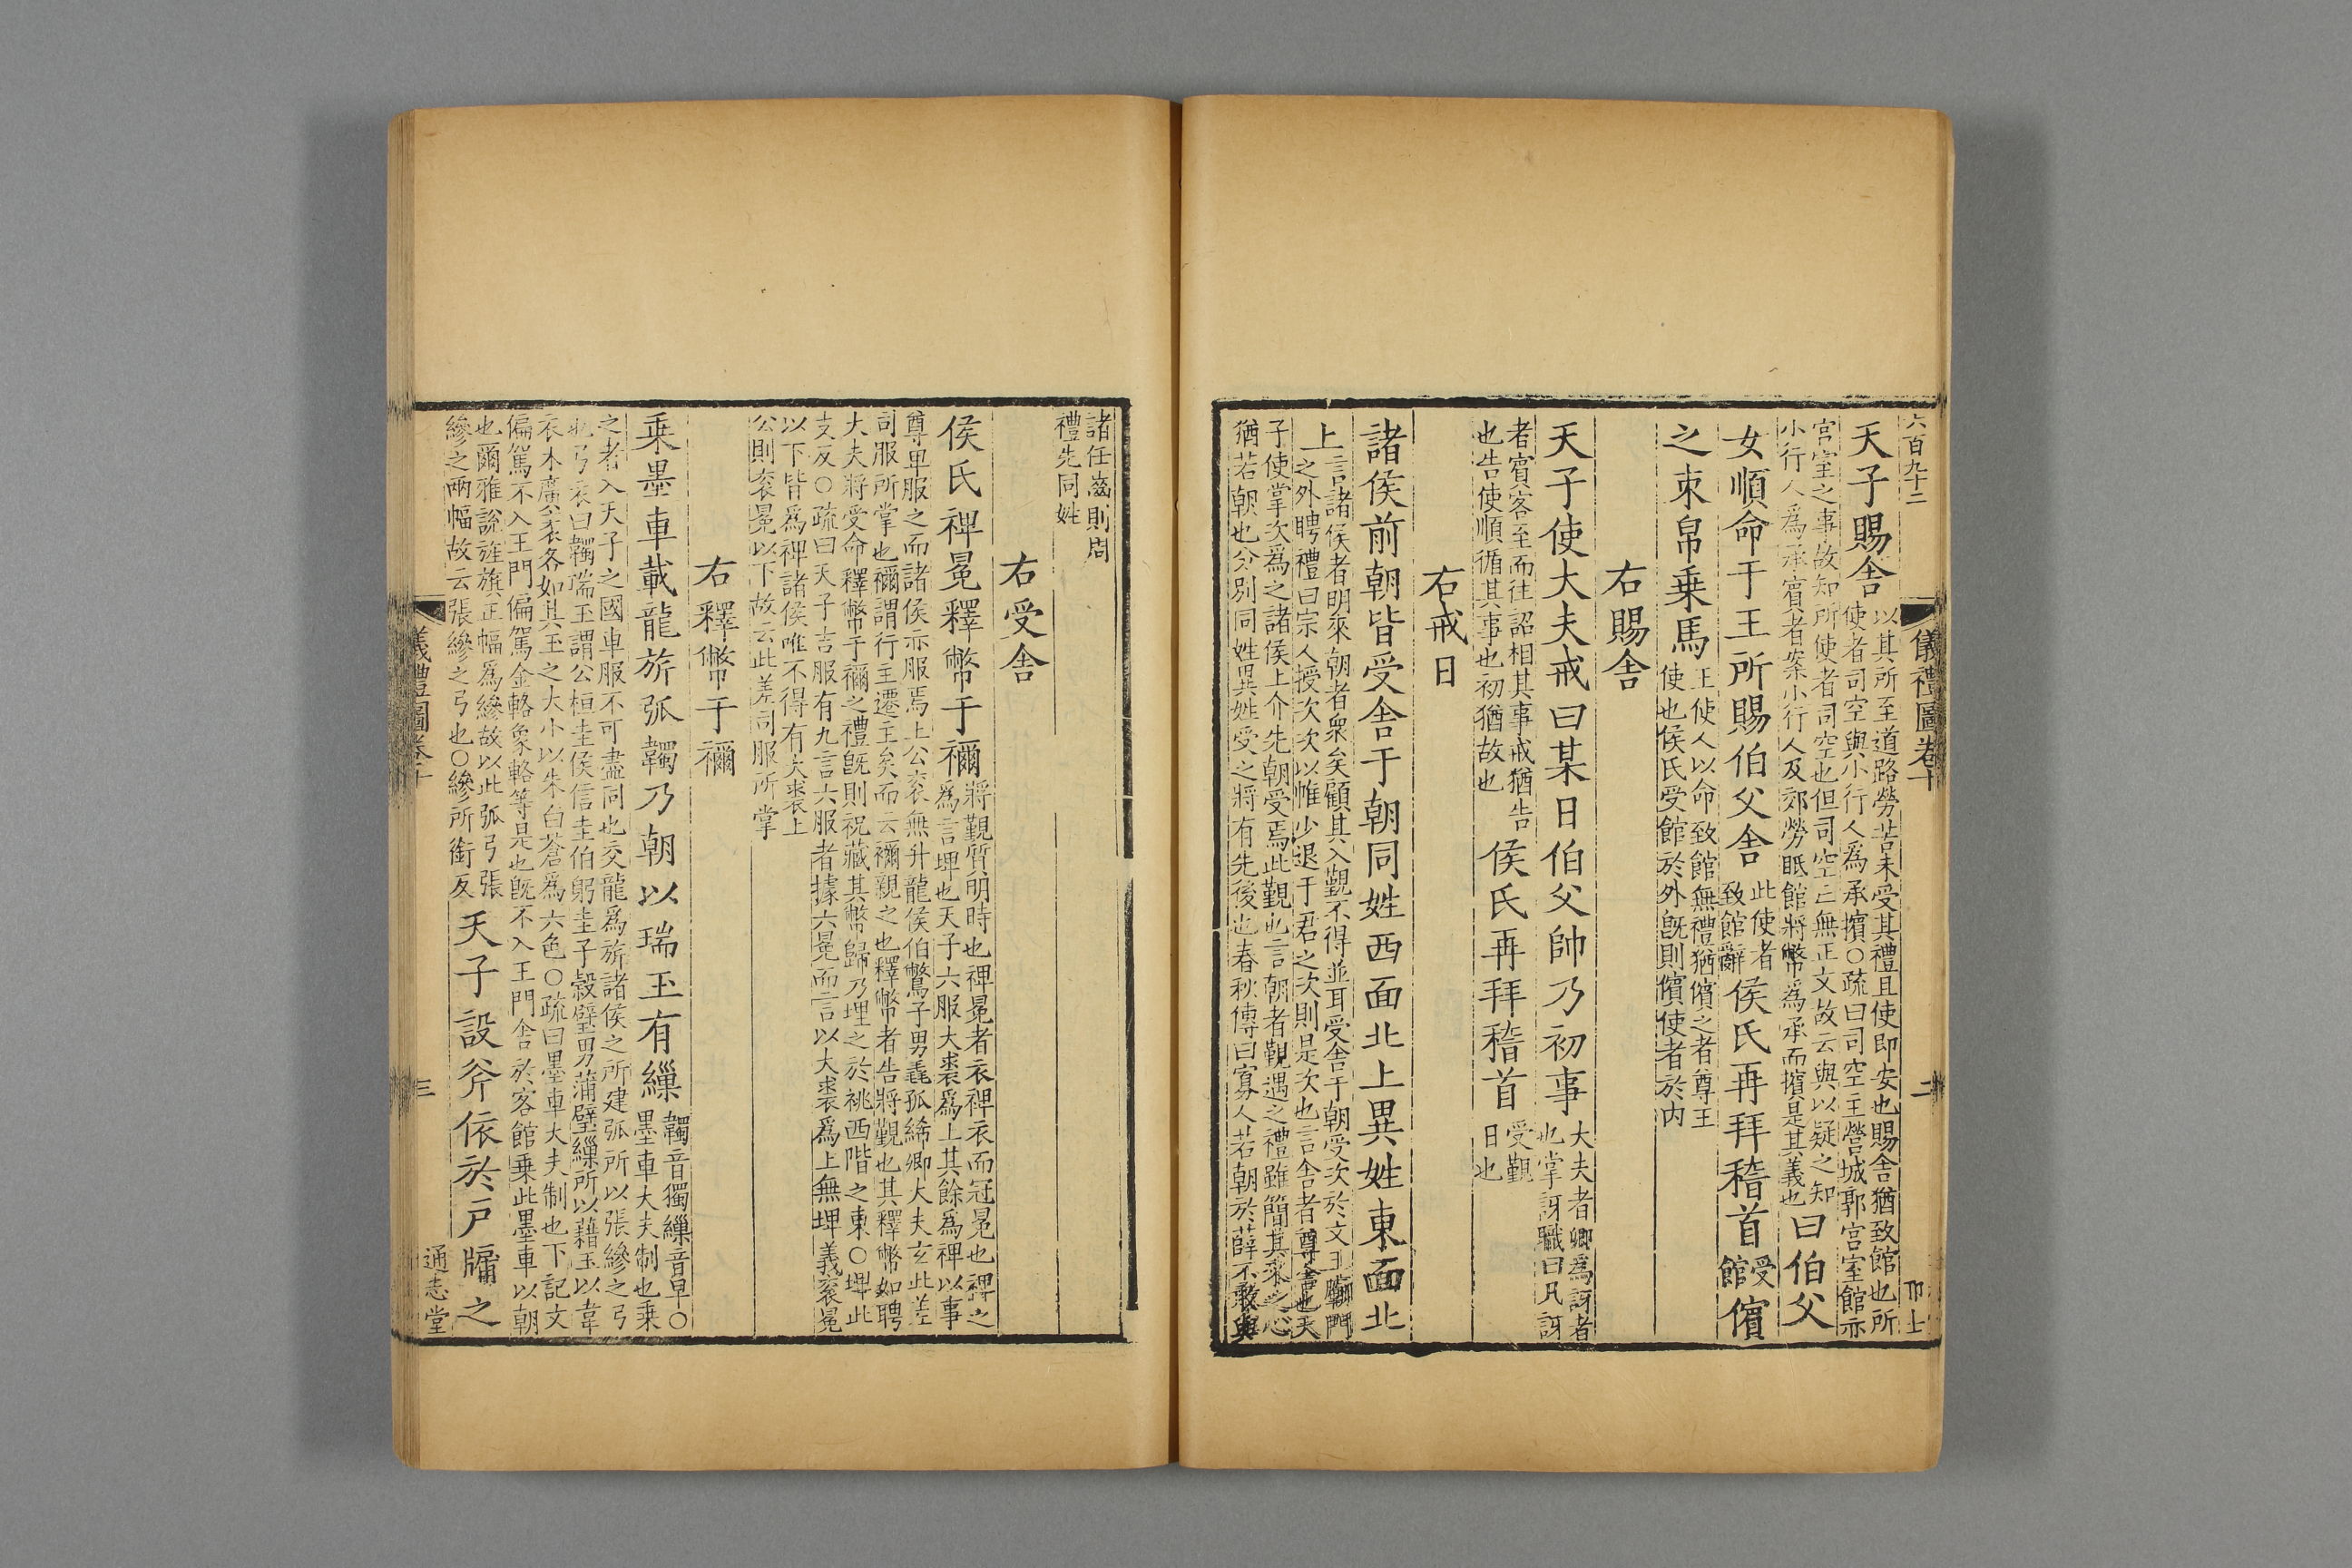 六百九十二
儀禮圖卷十
二
天子賜舍
以其所至道路勞苦未受其禮且使即安也賜舍猶致館也所
使者司空與小行人為承擯○疏曰司空主營城郭宮室館亦
宮室之事故知所使者司空也但司空亡無正文故云與以疑之知
小行人為承擯者案小行人及郊勞眂館將幣為承而擯是其義也
曰伯父
女順命于王所賜伯父舍
此使者
致館辭
侯氏再拜稽首
受
館
儐
之束帛乗馬
王使人以命致館無禮猶儐之者尊王
使也侯氏受館於外旣則儐使者於内
右賜舍
天子使大夫戒曰某日伯父帥乃初事
大夫者卿為訝者
也掌訝職曰凡訝
者賓客至而往詔相其事戒猶告
也告使順循其事也初猶故也
侯氏再拜稽首
受覲
日也
右戒日
諸侯前朝皆受舍于朝同姓西面北上異姓東面北
上
言諸侯者明來朝者衆矣顧其入覲不得並耳受舍于朝受次於文王廟門
之外聘禮曰宗人授次次以帷少退于君之次則是次也言舍者尊舍也天
子使掌次為之諸侯上介先朝受焉此覲也言朝者覲遇之禮雖簡其來之心
猶若朝也分別同姓異姓受之將有先後也春秋傳曰寡人若朝於薛不敢與
諸任齒則周
禮先同姓
右受舍
侯氏裨冕釋幣于禰
將覲質明時也裨冕者衣裨衣而冠冕也裨之
為言埤也天子六服大裘為上其餘為裨以事
尊卑服之而諸侯亦服焉上公衮無升龍侯伯鷩子男毳孤絺卿大夫玄此差
司服所掌也禰謂行主遷主矣而云禰親之也釋幣者告將覲也其釋幣如聘
大夫將受命釋幣于禰之禮旣則祝藏其幣歸乃埋之於祧西階之東○埤此
支反○疏曰天子吉服有九言六服者據六冕而言以大裘為上無埤義衮冕
以下皆為裨諸侯唯不得有大裘上
公則衮冕以下故云此差司服所掌
右釋幣于禰
乗墨車載龍旂弧韣乃朝以瑞玉有繅
韣音獨繅音早○
墨車大夫制也乗
之者入天子之國車服不可盡同也交龍為旂諸侯之所建弧所以張縿之弓
也弓衣曰韣瑞玉謂公桓圭侯信圭伯躬圭子穀璧男蒲璧繅所以藉玉以韋
衣木廣袤各如其玉之大小以朱白蒼為六色○疏曰墨車大夫制也下記文
偏駕不入王門偏駕金輅象輅等是也旣不入王門舍於客館乗此墨車以朝
也爾雅說旌旗正幅為縿故以此弧弓張
縿之兩幅故云張縿之弓也○縿所銜反
天子設斧依於戶牖之
儀禮圖卷十
三
通志堂